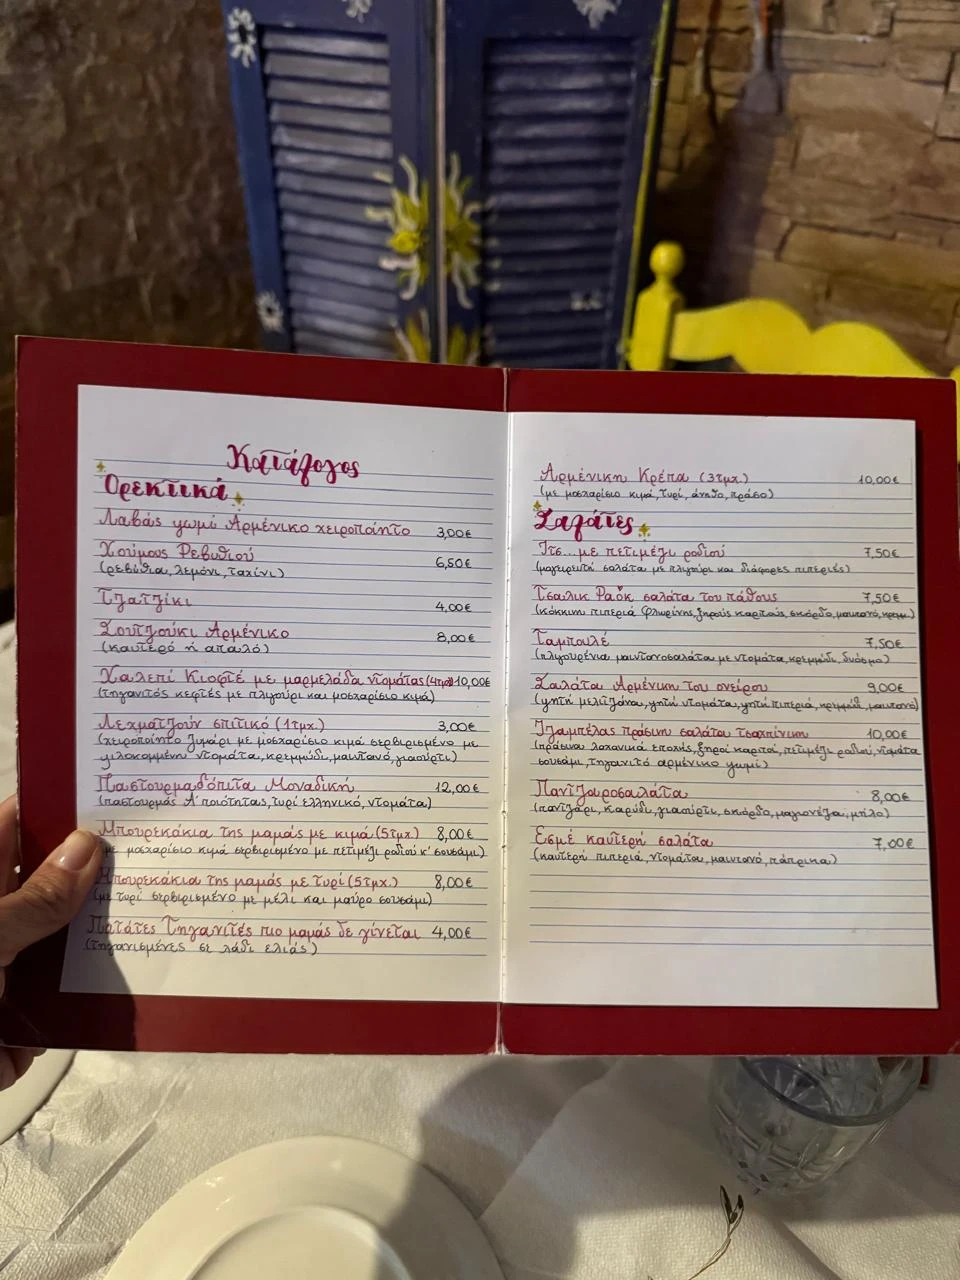 Κατάλογος
Ορεκτικά
Λαβάς ψωμί Αρμένικο χειροποίητο 3,00€
Χούμους Ρεβυθιού 6,50€
(ρεβύθια, λεμόνι, ταχίνι)
Τζατζίκι 4,00€
Σουτζούκι Αρμένικο 8,00€
(καυτερό ή απαλό)
Χαλεπί Κιοφτέ με μαρμελάδα ντομάτας (4τμχ) 10,00€
(τηγανιτός κεφτές με πλιγούρι και μοσχαρίσιο κιμά)
Λεχματζούν σπιτικό (1τμχ.) 3,00€
(χειροποίητο ζυμάρι με μοσχαρίσιο κιμά σερβιρισμένο με
ψιλοκομμένη ντομάτα, κρεμμύδι, μαιντανό, γιαούρτι)
Παστουρμαδόπιτα Μοναδική 12,00€
(παστουρμάς Α' ποιότητας, τυρί ελληνικό, ντομάτα)
Μπουρεκάκια της μαμάς με κιμά (5τμχ.) 8,00€
με μοσχαρίσιο κιμά σερβιρισμένο με πετιμέζι ροδιού κ' σουσάμι)
Μπουρεκάκια της μαμάς με τυρί (5τμχ.) 8,00€
(με τυρί σερβιρισμένο με μέλι και μαύρο σουσάμι)
Πατάτες Τηγανιτές πιο μαμάς δε γίνεται 4,00€
(τηγανισμένες σε λάδι ελιάς)
Αρμένικη Κρέπα (3τμχ.) 10,00€
(με μοσχαρίσιο κιμά, τυρί, άνηθο, πράσο)
Σαλάτες
Ίτς... με πετιμέζι ροδιού 7,50€
(μαγειρευτή σαλάτα με πλιγούρι και διάφορες πιπεριές)
Τσαλικ Ραόκ σαλάτα του πάθους 7,50€
(κόκκινη πιπεριά Φλωρίνης, ξηρούς καρπούς, σκόρδο, μαιντανό, κρεμ.)
Ταμπουλέ 7,50€
(πλιγουρένια μαιντανοσαλάτα με ντομάτα, κρεμμύδι, δυόσμο)
Σαλάτα Αρμένικη του ονείρου 9,00€
(ψητή μελιτζάνα, ψητή ντομάτα, ψητή πιπεριά, κρεμμύδι, μαιντανό)
Τζαμπέλας πράσινη σαλάτου τσαχπίνικη 10,00€
(πράσινα λαχανικά εποχής, ξηροί καρποί, πετιμέζι ροδιού, ντομάτα
σουσάμι, τηγανιτό αρμένικο ψωμί)
Παντζαροσαλάτα 8,00€
(παντζάρι, καρύδι, γιαούρτι, σκόρδο, μαγιονέζα, μήλο)
Εσμέ καυτερή σαλάτα 7,00€
(καυτερή πιπεριά, ντομάτα, μαιντανό, πάπρικα)